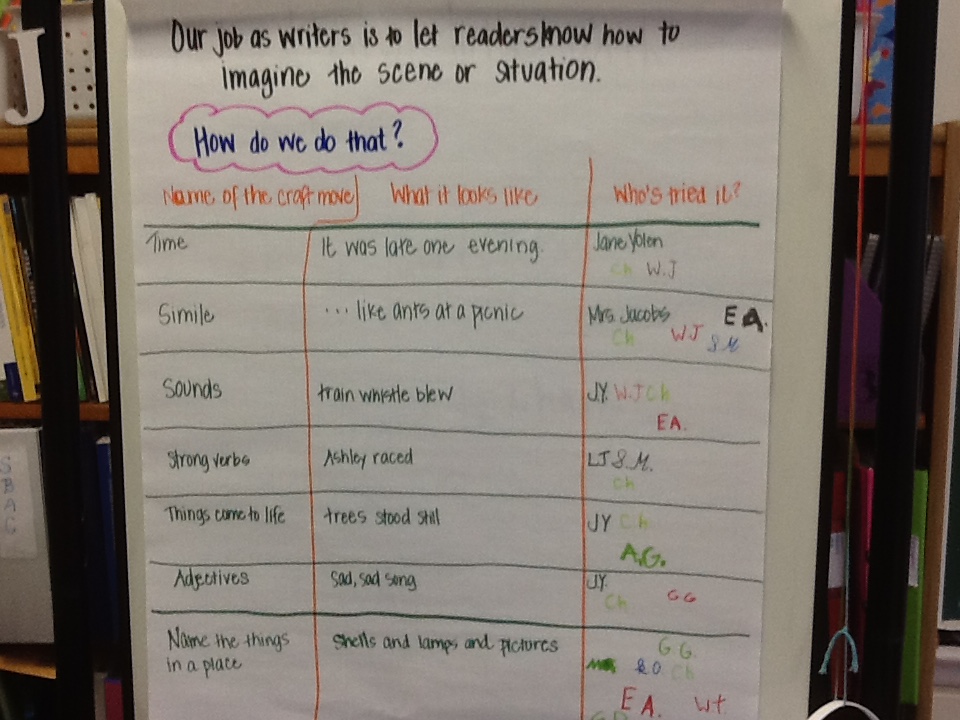 Our job as writers is to let readers know how to
imagine the scene or situation.
How do we do that?
Name of the craft move What it looks like Who's tried it?
Time It was late one evening. Jane Yolen
Ch W.J
Simile ... like ants at a picnic Mrs. Jacobs E A.
Ch WJ S.M
Sounds train whistle blew JY. W.J Ch
EA.
Strong verbs Ashley raced LJ S.M.
Ch
Things come to life trees stood still JY Ch
A.G.
Adjectives Sad, sad song JY.
Ch GG
Name the things Shells and lamps and pictures G G.
in a place Ch
E A. Wt
J
S
B
A
C